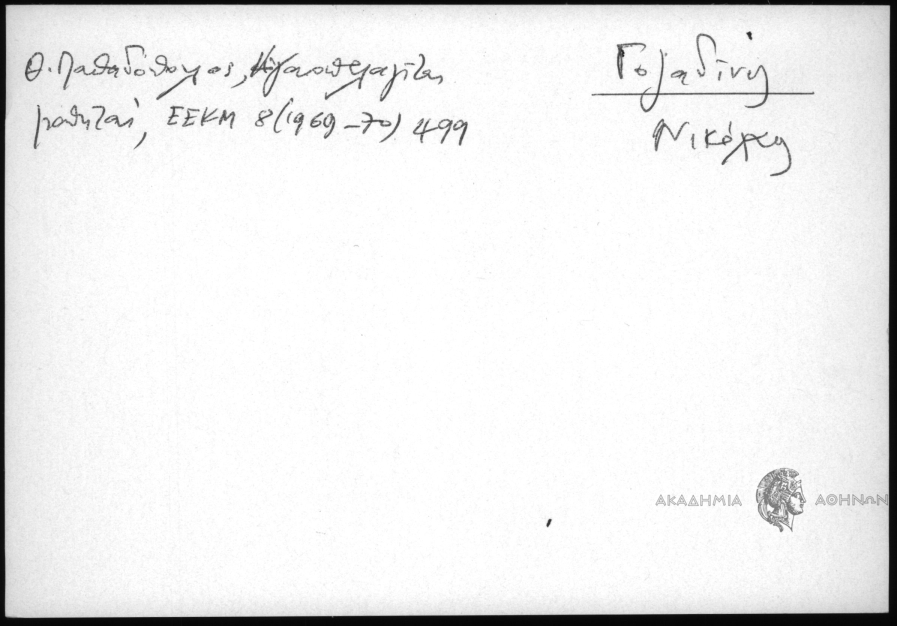 Θ. Παπαδόπουλος, Αιγαιοπελαγίται
μαθηταί, ΕΕΚΜ 8 (1969-70) 499
Γοζαδίνης
Νικόλαος
ΑΚΑΔΗΜΙΑ ΑΘΗΝΩΝ